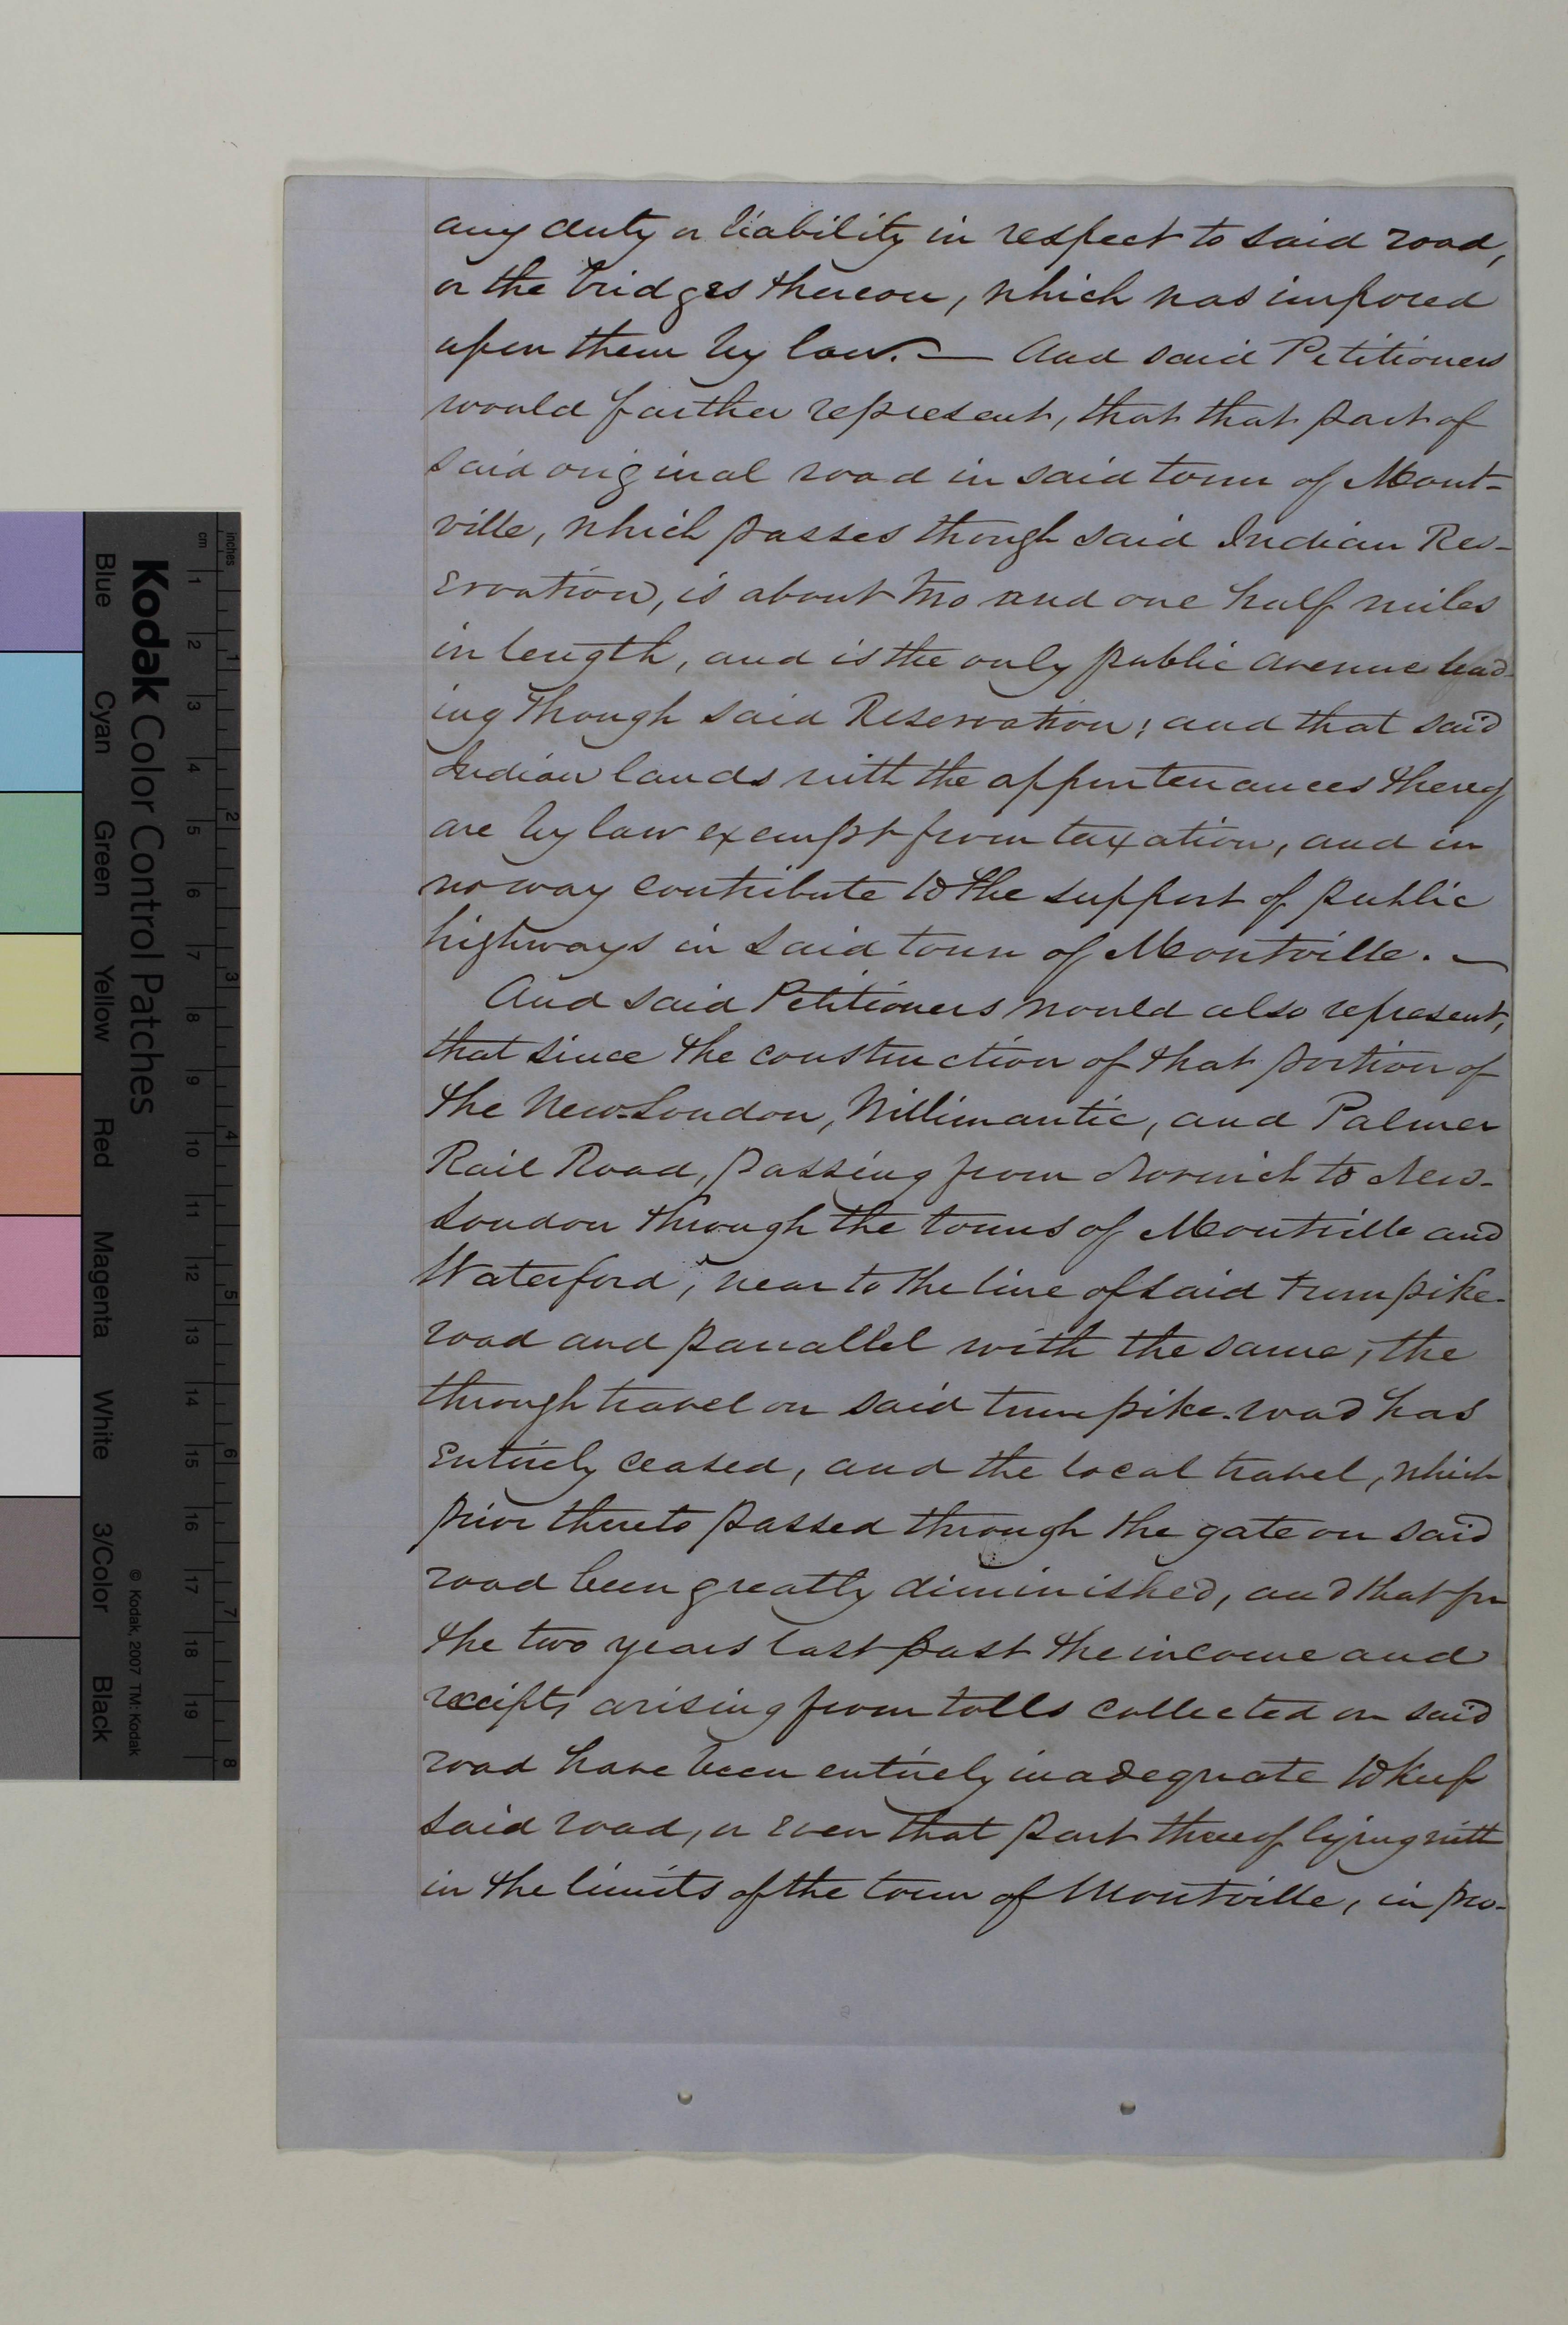 any duty or liability in respect to said road,
or the bridges thereon, which was imposed
upon them by law. — And said Petitioners
would further represent, that that part of
said original road in said town of Mont-
ville, which passes though said Indian Res-
ervation, is about two and one half miles
in length, and is the only public avenue lead-
ing though said Reservation; and that said
Indian lands with the appurtenances thereof
are by law exempt from taxation, and in
no way contribute to the support of public
highways in said town of Montville. —
And said Petitioners would also represent,
that since the construction of that portion of
the New-London, Willimantic, and Palmer
Rail Road, passing from Norwich to New-
London through the towns of Montville and
Waterford, near to the line of said turnpike-
road and parrallel with the same, the
through travel on said turnpike-road has
entirely ceased, and the local travel, which
prior thereto passed through the gate on said
road been greatly diminished, and that for
the two years last past the income and
receipts arising from tolls collected on said
road have been entirely inadequate to keep
said road, or even that part thereof lying with
in the limits of the town of Montville, in pro-
inches
cm
1 2 3 4 5 6 7 8
1 2 3 4 5 6 7 8 9 10 11 12 13 14 15 16 17 18 19
Kodak Color Control Patches
© Kodak, 2007 TM: Kodak
Blue Cyan Green Yellow Red Magenta White 3/Color Black